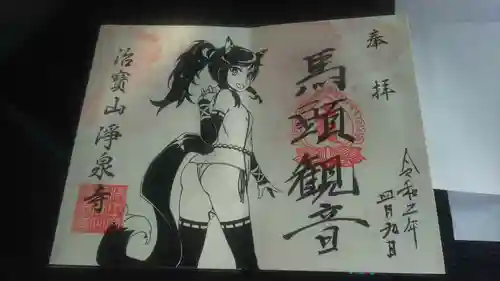 奉拝
馬頭観音
令和五年
四月九日
治寶山淨泉寺